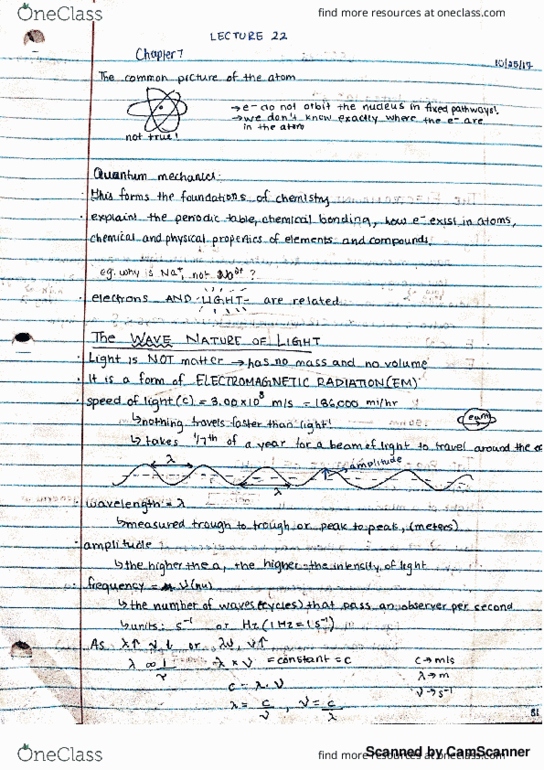 OneClass
find more resources at oneclass.com
LECTURE 22
Chapter 7
10/25/17
The common picture of the atom
→ e- do not orbit the nucleus in fixed pathways!
→ we don't know exactly where the e- are
in the atom
not true!
Quantum mechanics:
· this forms the foundations of chemistry
· explains the periodic table, chemical bonding, how e- exist in atoms,
chemical and physical properties of elements and compounds.
eg. why is Na+, not Na2+ ?
· electrons AND LIGHT are related
The WAVE NATURE OF LIGHT
· Light is NOT matter → has no mass and no volume
· It is a form of ELECTROMAGNETIC RADIATION (EM)
· speed of light (c) = 3.00 x 10^8 m/s = 186,000 mi/hr
↳ nothing travels faster than light!
↳ takes 1/7th of a year for a beam of light to travel around the
λ
amplitude
λ
· wavelength = λ
↳ measured trough to trough or peak to peak, (meters)
· amplitude
↳ the higher the a, the higher the intensity of light
· frequency = ν (nu)
↳ the number of waves (cycles) that pass an observer per second
↳ units: s-1 or Hz (1 Hz = 1 s-1)
As λ↑ ν↓ or λ↓, ν↑
λ ∞ 1/ν λ x ν = constant = c
c → m/s
λ → m
ν → s-1
c = λ · ν
λ = c/ν , ν = c/λ
OneClass
find more resources at oneclass.com
Scanned by CamScanner